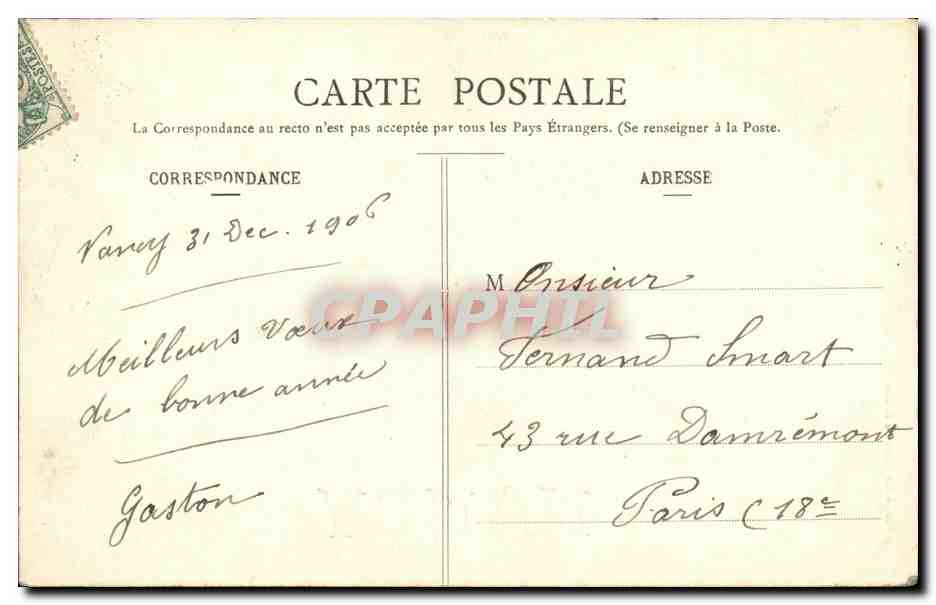 POSTES
CARTE POSTALE
La Correspondance au recto n'est pas acceptée par tous les Pays Étrangers. (Se renseigner à la Poste.
CORRESPONDANCE
Nancy 31 Dec. 1906
Meilleurs Vœux
de bonne année
Gaston
ADRESSE
Monsieur
Fernand Smart
43 rue Damrémont
Paris (18e
CPAPHIL